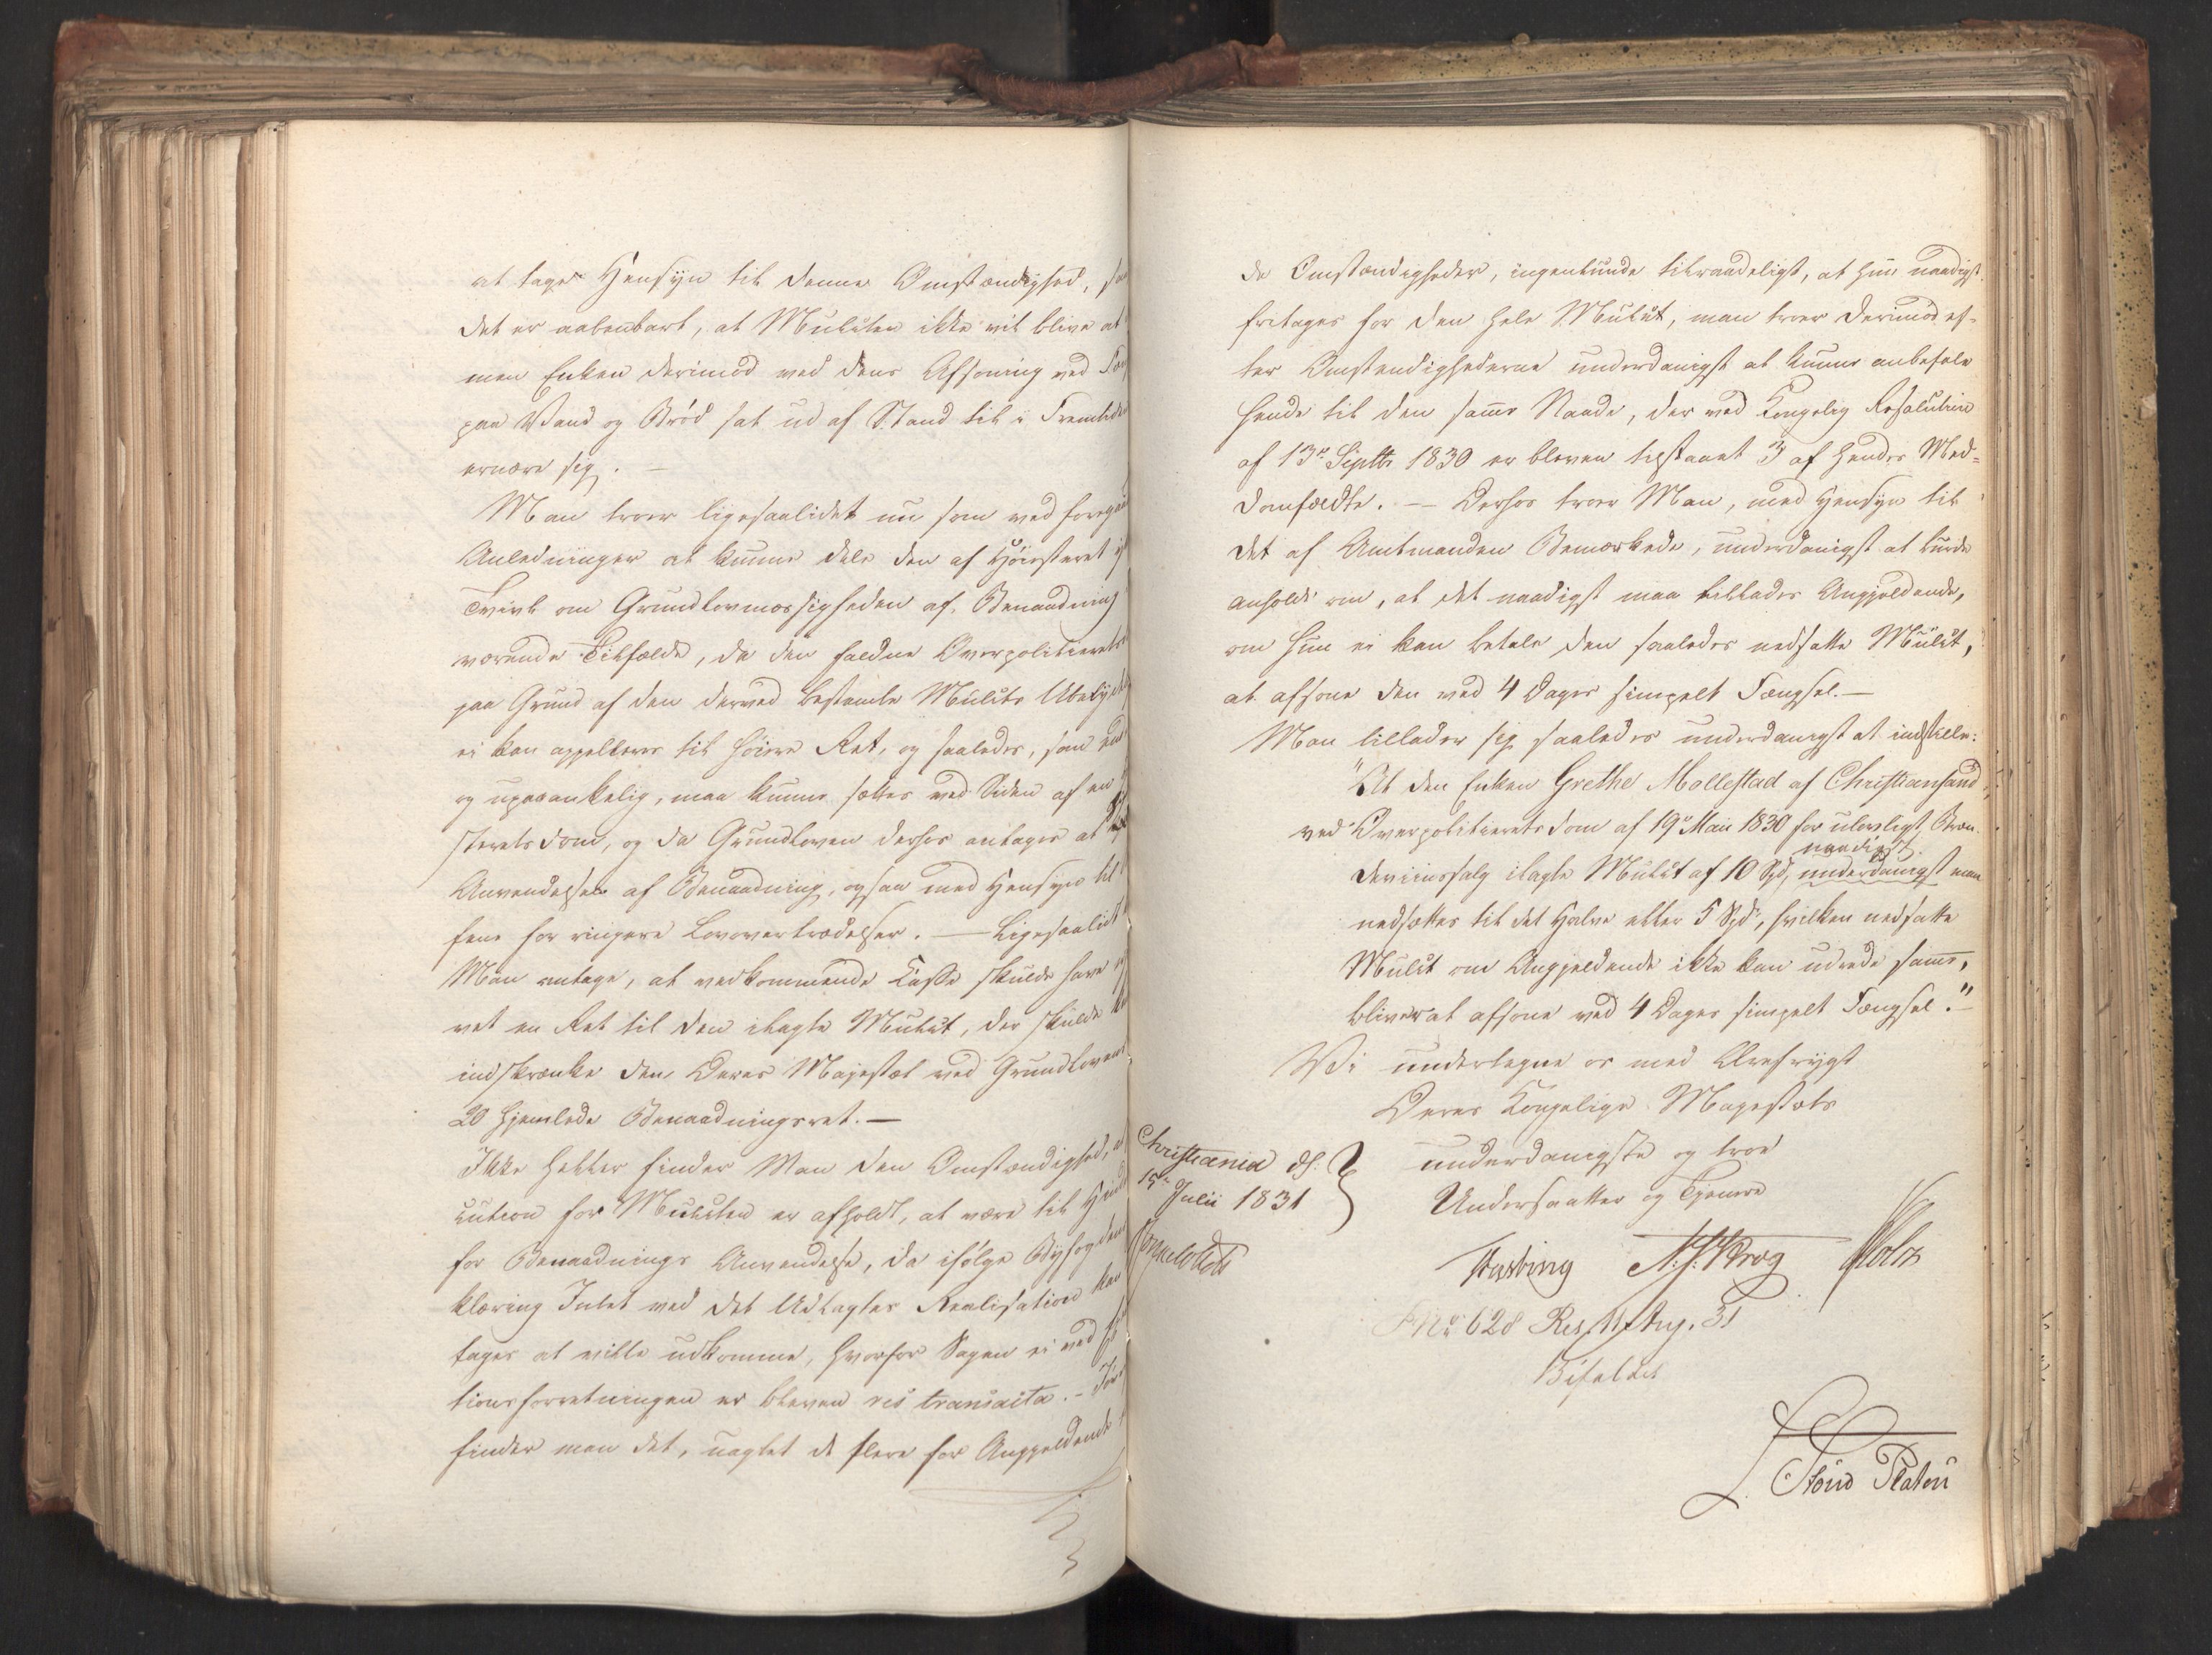 at tage Hensyn til denne Omstændighed, 
det er aabenbart, at Mulkten ikke vil blive at
men Enken derimod ved dens Afsoning ved
paa Vand og Brød sat ud af Stand til i Fremtiden
ernære sig. —
Man troer ligesaalidet nu som ved foregaaende
Anledninger at kunne dele den af Høiesteret
Tvivl om Grundlovmæssigheden af Benaadning
værende Tilfælde, da den faldne Overpolitierets
paa Grund af den derved bestemte Mulkts Ubetyde
ei kan appelleres til høiere Ret, og saaledes, som
og upaaankelig, maa kunne sættes ved Siden af en
steretsdom, og da Grundloven derhos antages at
Anvendelsen af Benaadning, ogsaa med Hensyn til
fene for ringere Lovovertrædelser. — Ligesaalidt
Man antage, at vedkommende Casse skulde have
vet en Ret til den ilagte Mulkt, der skulde
indskrænke den, Deres Majestæt ved Grundlovens
20 hjemlede Benaadningsret. —
Ikke heller finder Man den Omstændighed,
cution for Mulkten er afholdt, at være til Hinder
for Benaadnings Anvendelse, da ifølge Byfogdens
klæring Intet ved det Udlagtes Realisation kan
tages at ville udkomme, hvorfor Sagen ei ved
tionsforretningen er bleven res transacta. —
finder man det, uagtet de flere for Angjeldende
de Omstændigheder, ingenlunde tilraadeligt, at hun naadigst
fritages for den hele Mulkt, man troer derimod ef-
ter Omstændighederne underdanigst at kunne anbefale
hende til den samme Naade, der ved Kongelig Resolution
af 13de Septbr 1830 er bleven tilstaaet 3 af hendes Med-
domfældte. — Derhos troer Man, med Hensyn til
det af Amtmanden Bemærkede, underdanigst at burde
anholde om, at det naadigst maa tillades Angjeldende,
om hun ei kan betale den saaledes nedsatte Mulkt,
at afsone den ved 4 Dages simpelt Fængsel. —
Man tillader sig saaledes underdanigst at indstille:
"At den Enken Grethe Mollestad af Christiansand
ved Overpolitieretsdom af 19de Mai 1830 for ulovligt Bræn-
naadigst
deviinssalg ilagte Mulkt af 10 Spd, underdanigst maa
nedsættes til det Halve eller 5 Spd, hvilken nedsatte
Mulkt om Angjeldende ikke kan udrede samme,
bliver at afsone ved 4 Dages simpelt Fængsel." —
Vi undertegne os med Ærefrygt
Deres Kongelige Majestæts
underdanigste og troe
Undersaatter og Tjenere
Christiania d.
15de Julii 1831
Krog Holst
No 628 Res. 11 Aug. 31
Bifaldet
Platou